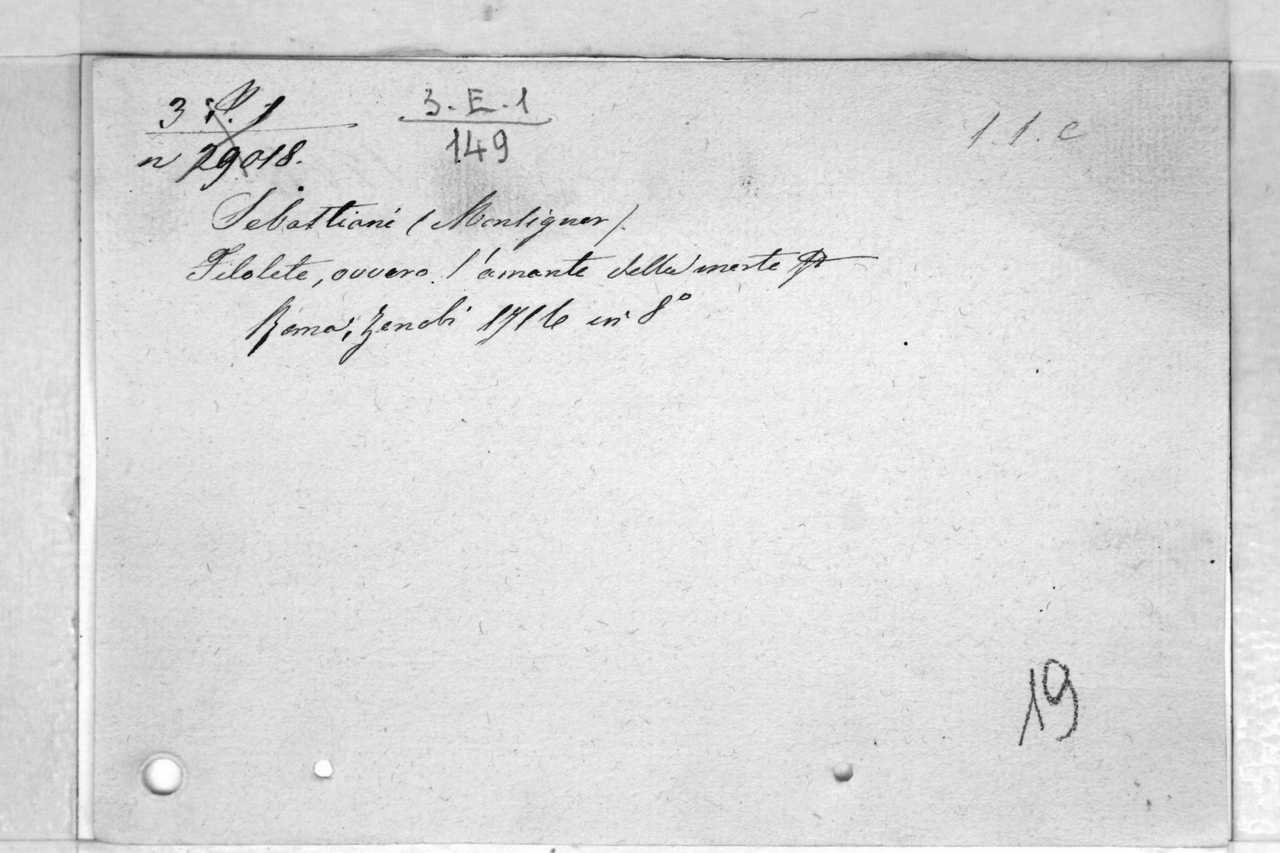 3 P. 1
n 29018.
3. E. 1
149
1. 1. c
Sebastiani (Monsignor).
Filolete, ovvero l'amante della morte
Roma, Zenobi 1716 in 8°
19